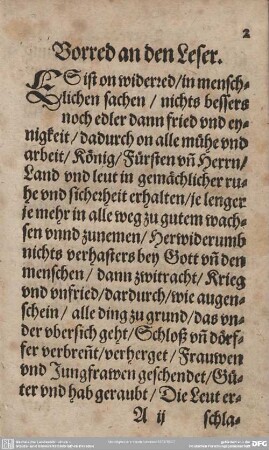 2
Vorred an den Leser.
ES ist on widerred/in mensch-
lichen sachen / nichts bessers
noch edler dann fried vnd ey-
nigkeit / dadurch on alle mühe vnd
arbeit / König / Fürsten vñ Herrn/
Land vnd leut in gemächlicher ru-
he vnd sicherheit erhalten/je lenger
je mehr in alle weg zu gutem wach-
sen vnnd zunemen/Herwiderumb
nichts verhaßters bey Gott vñ den
menschen / dann zwitracht / Krieg
vnd vnfried/dardurch/wie augen-
schein / alle ding zu grund/das vn-
der vbersich geht/Schloß vñ dörf-
fer verbreñt/verherget / Frauwen
vnd Jungfrawen geschendet/Gü-
ter vnd hab geraubt / Die Leut er-
A ij schla-